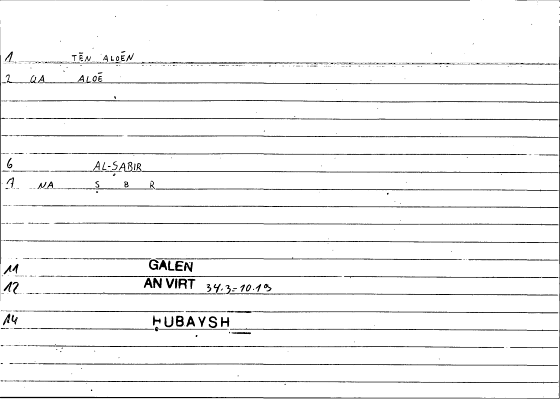 1 TĒN ALOĒN
2 GA ALOĒ
6 AL-ṢABIR
7 NA Ṣ B R
11 GALEN
12 AN VIRT 34.3=10.19
14 ḤUBAYSH